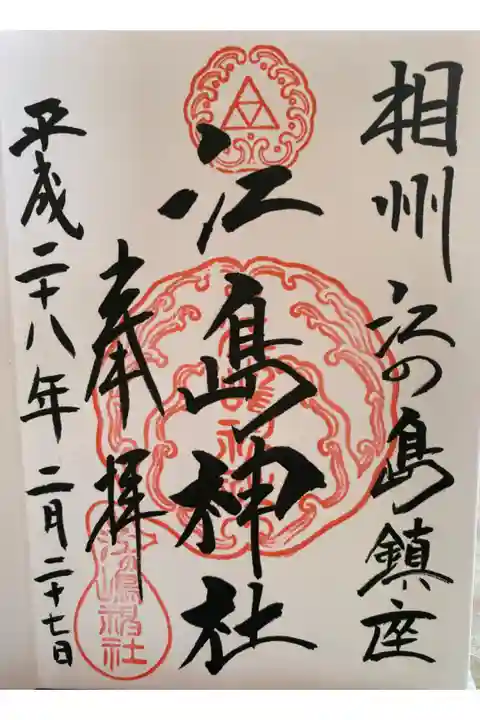 相州江の島鎮座
江島神社
奉拝
平成二十八年二月二十七日
江嶋神社